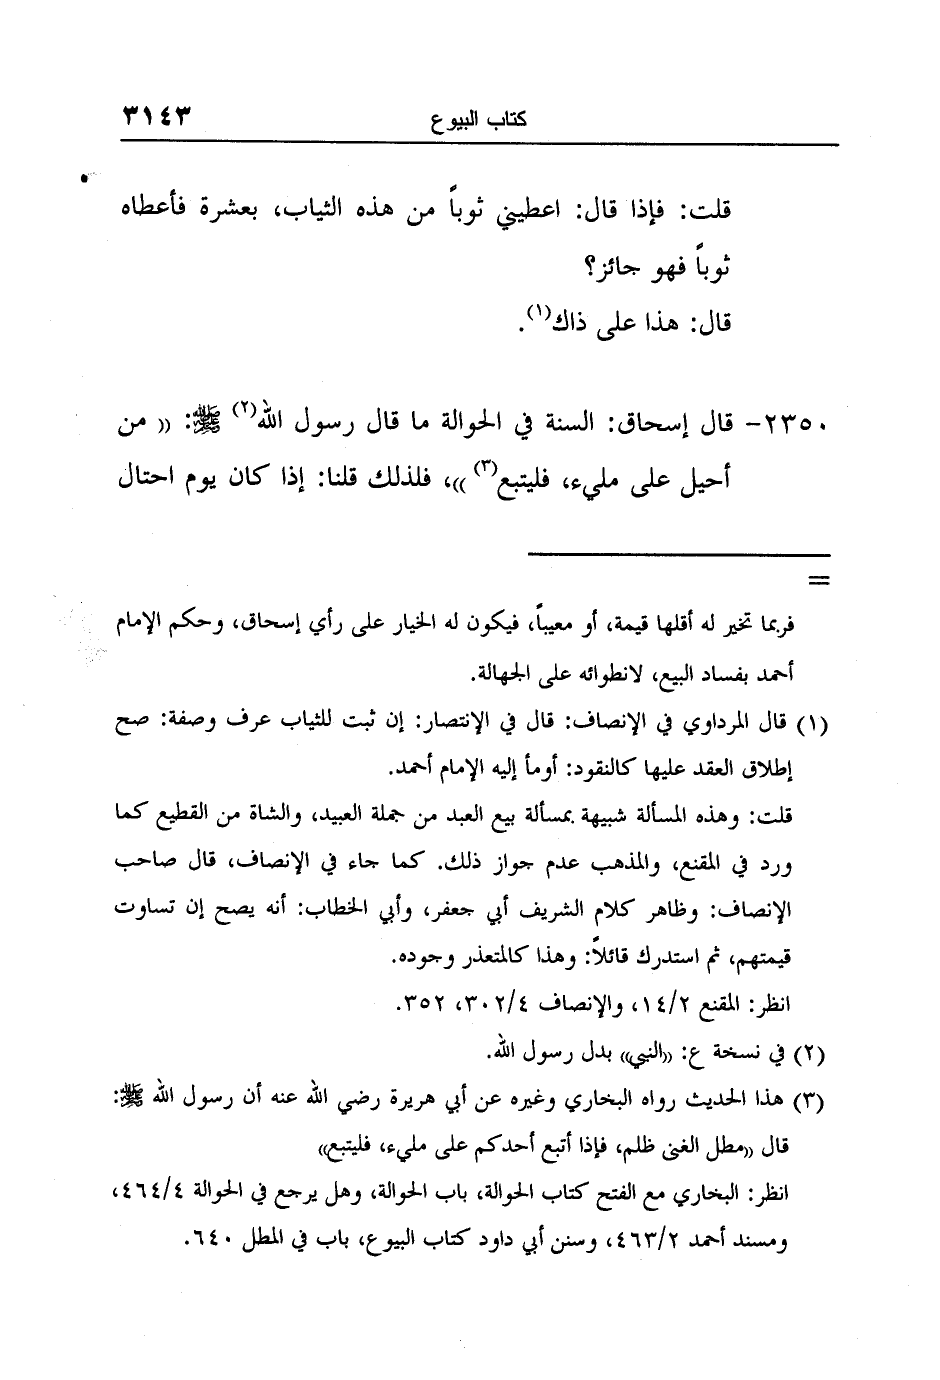 كتاب البيوع ٣١٤٣
قلت: فإذا قال: اعطيني ثوباً من هذه الثياب، بعشرة فأعطاه
ثوباً فهو جائز؟
قال: هذا على ذاك(١).
٢٣٥٠- قال إسحاق: السنة في الحوالة ما قال رسول الله(٢) ﷺ: (( من
أحيل على مليء، فليتبع(٣) ))، فلذلك قلنا: إذا كان يوم احتال
=
فربما تخير له أقلها قيمة، أو معيباً، فيكون له الخيار على رأي إسحاق، وحكم الإمام
أحمد بفساد البيع، لانطوائه على الجهالة.
(١) قال المرداوي في الإنصاف: قال في الإنتصار: إن ثبت للثياب عرف وصفة: صح
إطلاق العقد عليها كالنقود: أومأ إليه الإمام أحمد.
قلت: وهذه المسألة شبيهة بمسألة بيع العبد من جملة العبيد، والشاة من القطيع كما
ورد في المقنع، والمذهب عدم جواز ذلك. كما جاء في الإنصاف، قال صاحب
الإنصاف: وظاهر كلام الشريف أبي جعفر، وأبي الخطاب: أنه يصح إن تساوت
قيمتهم، ثم استدرك قائلاً: وهذا كالمتعذر وجوده.
انظر: المقنع ١٤/٢، والإنصاف ٣٠٢/٤، ٣٥٢.
(٢) في نسخة ع: ((النبي)) بدل رسول الله.
(٣) هذا الحديث رواه البخاري وغيره عن أبي هريرة رضي الله عنه أن رسول الله ﷺ:
قال ((مطل الغنى ظلم، فإذا أتبع أحدكم على مليء، فليتبع))
انظر: البخاري مع الفتح كتاب الحوالة، باب الحوالة، وهل يرجع في الحوالة ٤٦٤/٤،
ومسند أحمد ٤٦٣/٢، وسنن أبي داود كتاب البيوع، باب في المطل ٦٤٠.